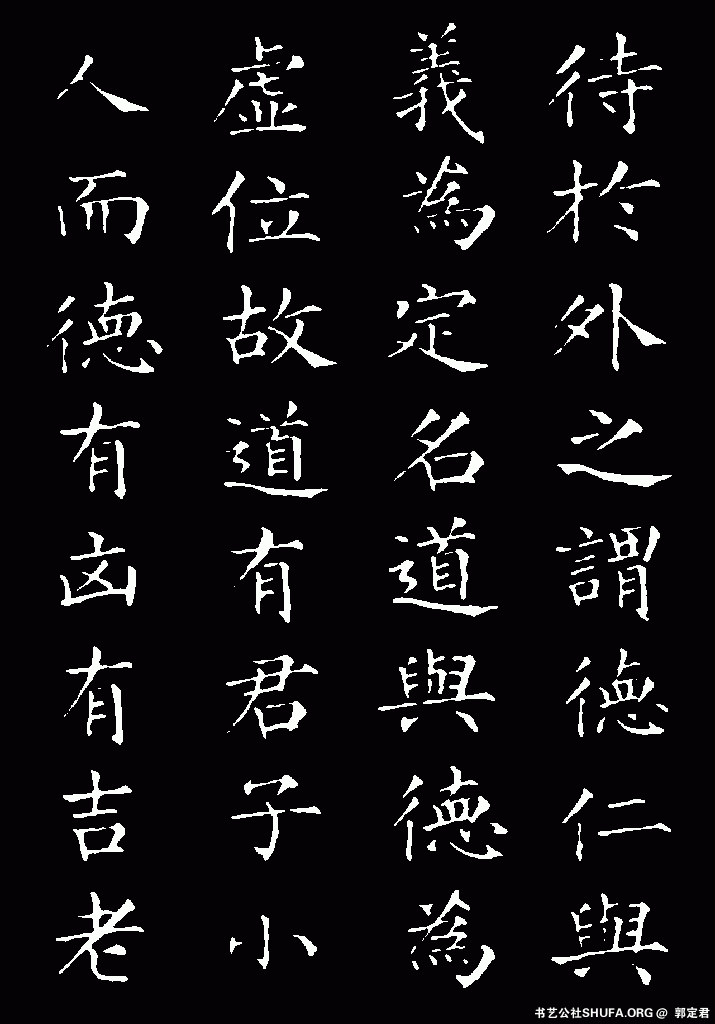 待於外之謂德仁與
義為定名道與德為
虛位故道有君子小
人而德有凶有吉老
书艺公社SHUFA.ORG @ 郭定君